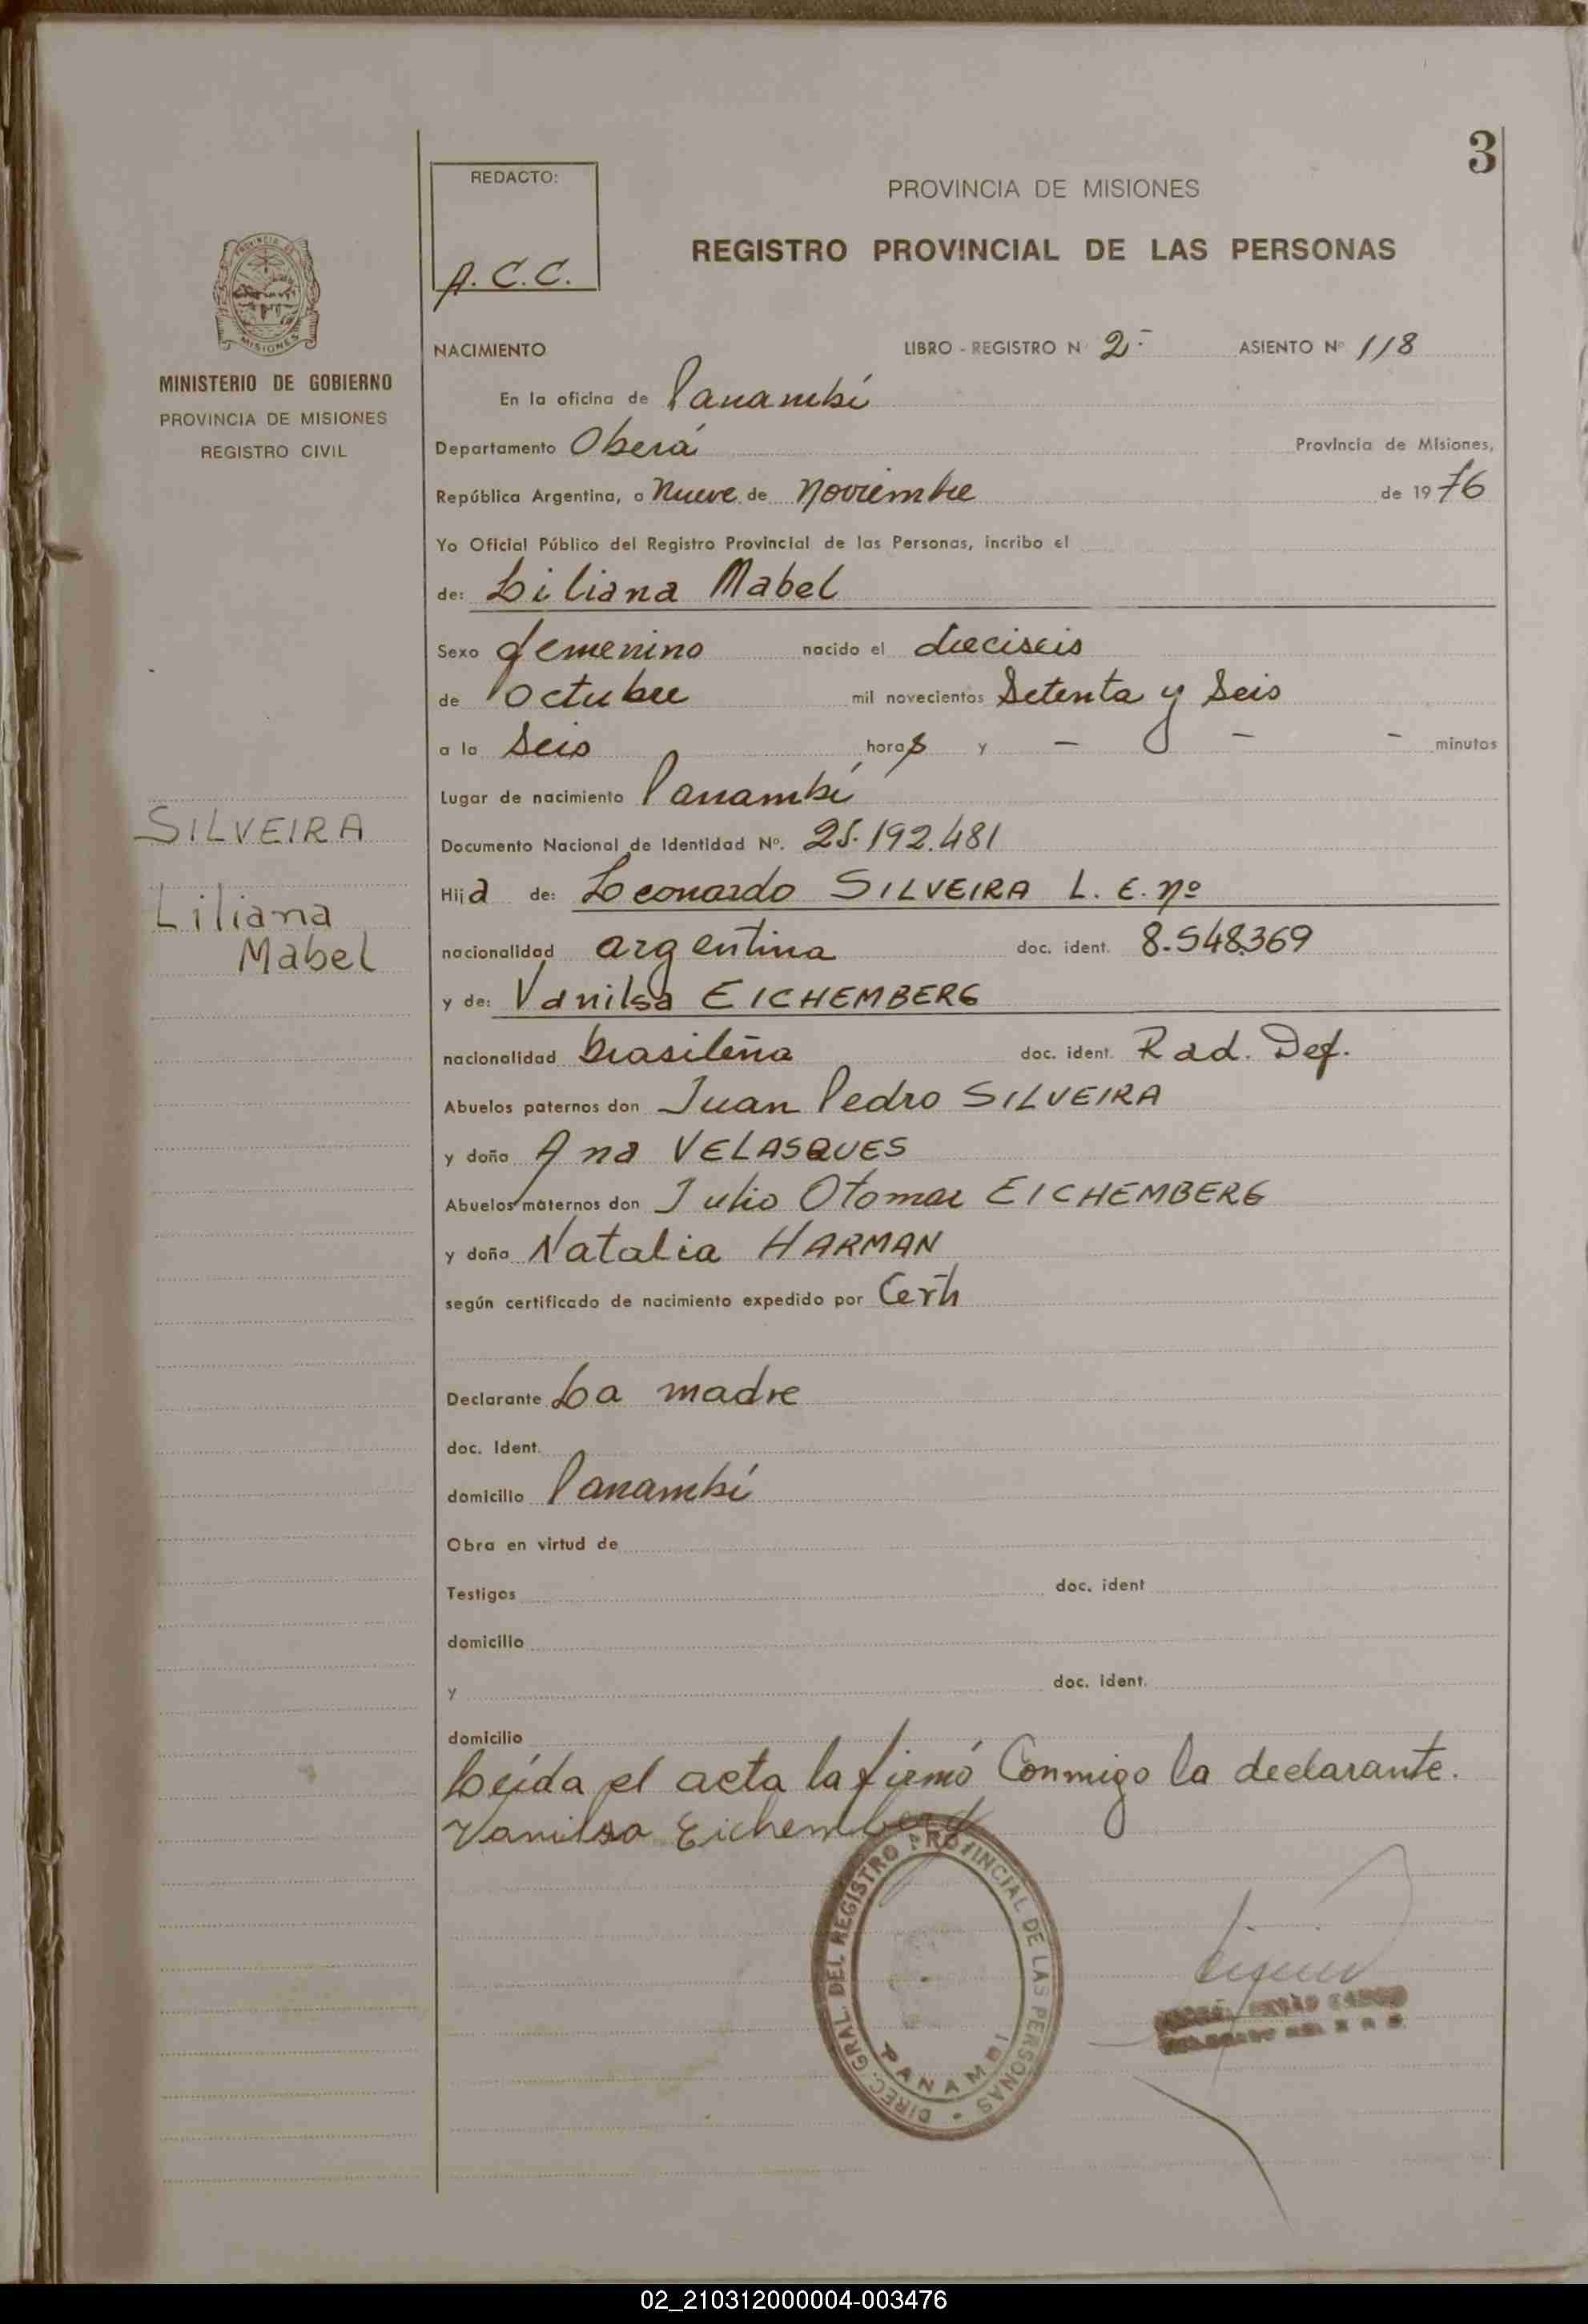 3
REDACTO:
A.C.C.
PROVINCIA DE MISIONES
REGISTRO PROVINCIAL DE LAS PERSONAS
PROVINCIA DE
MISIONES
MINISTERIO DE GOBIERNO
PROVINCIA DE MISIONES
REGISTRO CIVIL
SILVEIRA
Liliana
Mabel
NACIMIENTO LIBRO - REGISTRO N 2- ASIENTO Nº 118
En la oficina de Panambí
Departamento Oberá Provincia de Misiones,
República Argentina, a Nueve de Noviembre de 1976
Yo Oficial Público del Registro Provincial de las Personas, incribo el
de: Liliana Mabel
Sexo femenino nacido el dieciseis
de Octubre mil novecientos Setenta y Seis
a la Seis horas y - - - minutos
Lugar de nacimiento Panambí
Documento Nacional de Identidad Nº. 25.192.481
Hija de: Leonardo SILVEIRA L. E. nº
nacionalidad argentina doc. ident. 8.548.369
y de: Vanilsa EICHEMBERG
nacionalidad brasileña doc. ident. Rad. Def.
Abuelos paternos don Juan Pedro SILVEIRA
y doña Ana VELASQUES
Abuelos maternos don Julio Otomar EICHEMBERG
y doña Natalia HARMAN
según certificado de nacimiento expedido por
Declarante La madre
doc. Ident.
domicilio Panambí
Obra en virtud de
Testigos doc. ident
domicilio
y doc. ident.
domicilio
Leída el acta la firmó Conmigo la declarante.
Vanilsa Eichemberg
DIREC. GRAL. DEL REGISTRO PROVINCIAL DE LAS PERSONAS -
PANAMBI
02_210312000004-003476